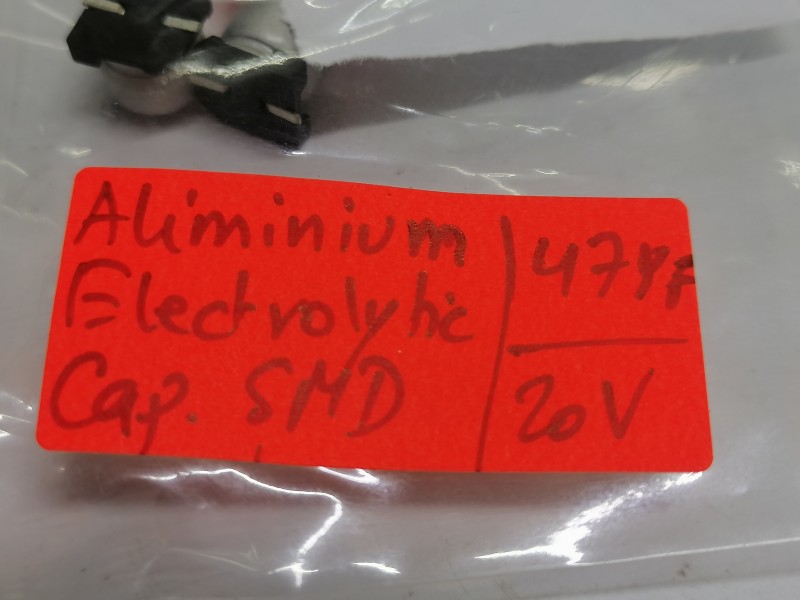 Aliminium
Electrolytic
Cap. SMD
47µF
20V